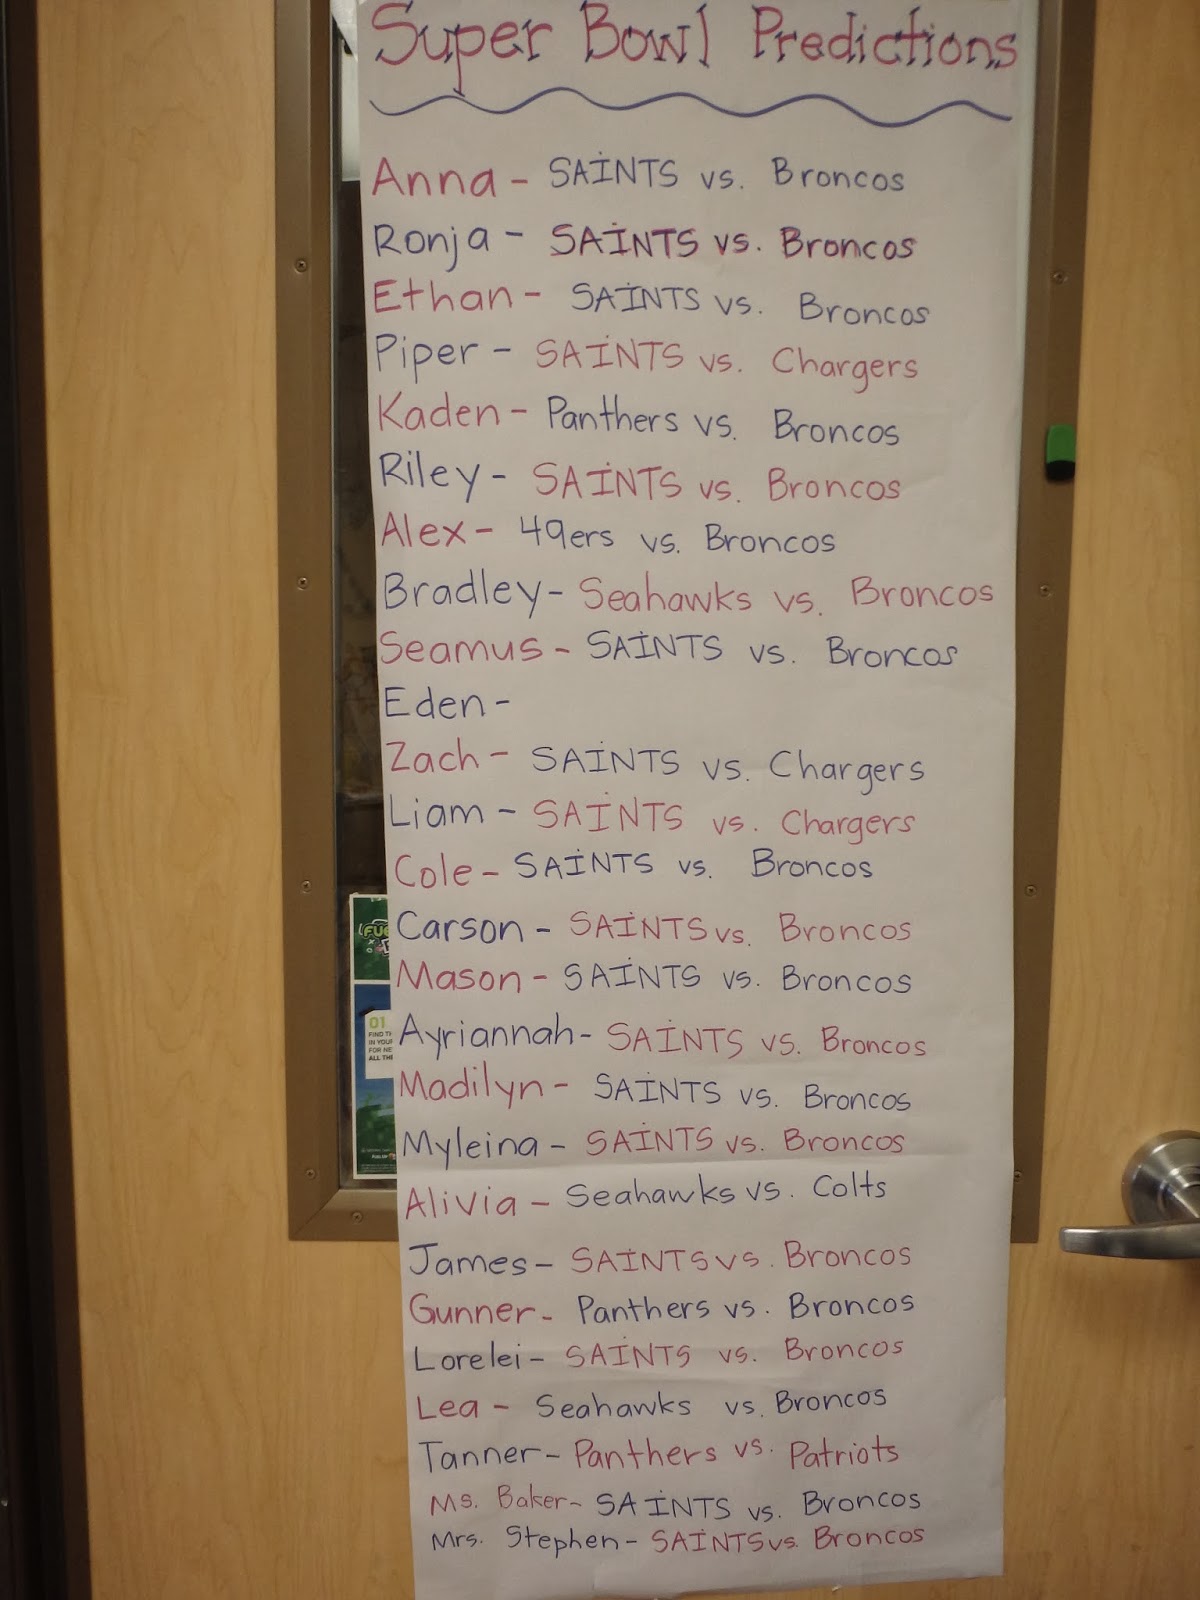 Super Bowl Predictions
Anna - SAINTS vs. Broncos
Ronja - SAINTS vs. Broncos
Ethan - SAINTS vs. Broncos
Piper - SAINTS vs. Chargers
Kaden - Panthers vs. Broncos
Riley - SAINTS vs. Broncos
Alex - 49ers vs. Broncos
Bradley - Seahawks vs. Broncos
Seamus - SAINTS vs. Broncos
Eden -
Zach - SAINTS vs. Chargers
Liam - SAINTS vs. Chargers
Cole - SAINTS vs. Broncos
Carson - SAINTS vs. Broncos
Mason - SAINTS vs. Broncos
Ayriannah - SAINTS vs. Broncos
Madilyn - SAINTS vs. Broncos
Myleina - SAINTS vs. Broncos
Alivia - Seahawks vs. Colts
James - SAINTS vs. Broncos
Gunner - Panthers vs. Broncos
Lorelei - SAINTS vs. Broncos
Lea - Seahawks vs. Broncos
Tanner - Panthers vs. Patriots
Ms. Baker - SAINTS vs. Broncos
Mrs. Stephen - SAINTS vs. Broncos
01
FIND
IN YOUR
FOR
ALL